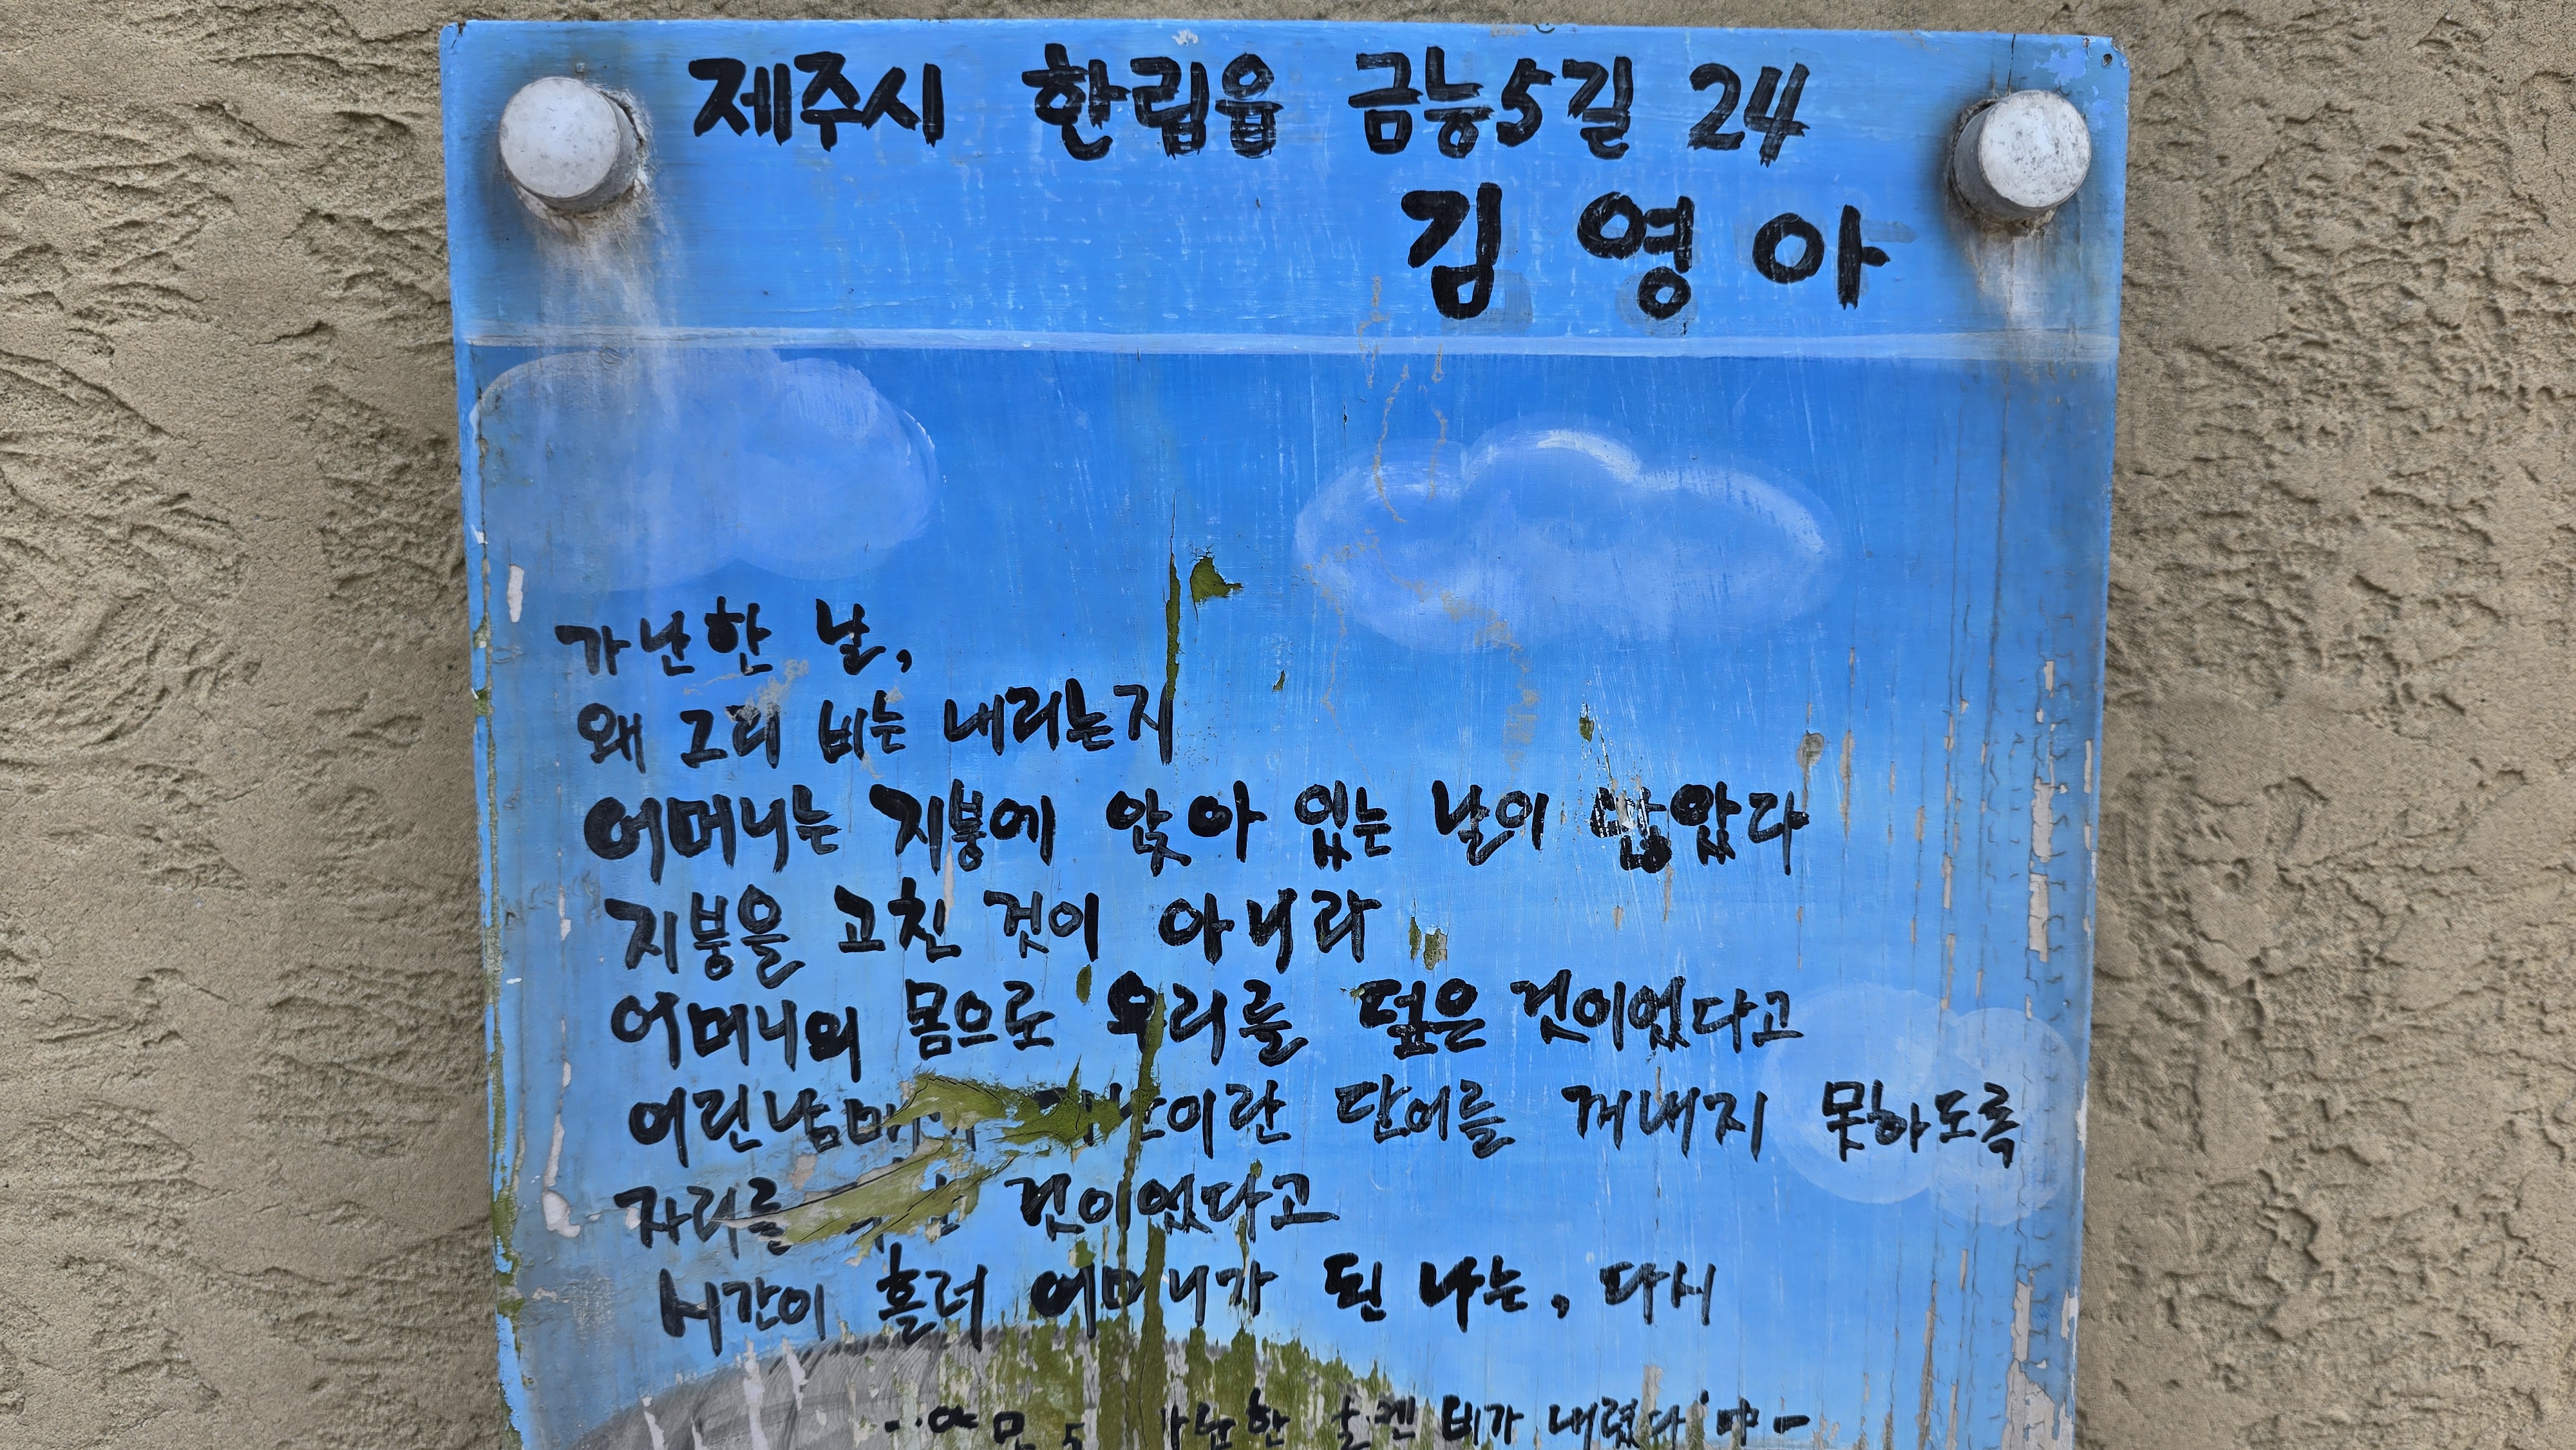 제주시 한립읍 금능5길 24
김영아
가난한 날,
왜 그리 비는 내리는지
어머니는 지붕에 앉아 있는 날이 많았다
지붕을 고친 것이 아니라
어머니의 몸으로 우리를 덮은 것이었다고
어린남매 이란 단어를 꺼내지 못하도록
자리를 것이었다고
시간이 흘러 어머니가 된 나는, 다시
비가 내렸다 中-